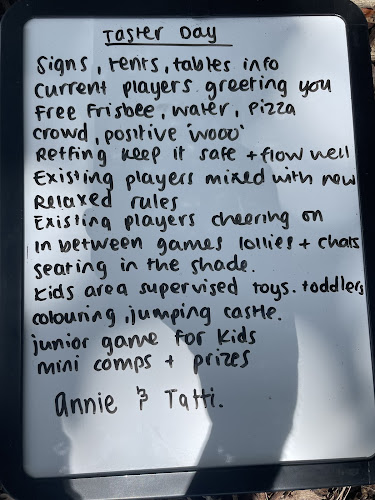 Taster Day
Signs, tents, tables info
current players greeting you
Free Frisbee, water, Pizza
crowd, positive 'wooo'
Reffing keep it safe + flow well
Existing players mixed with new
Relaxed rules
Existing players cheering on
In between games lollies + chats
seating in the shade.
Kids area supervised toys. toddlers
colouring, jumping castle.
junior game for kids
mini comps + prizes
Annie & Tatti.